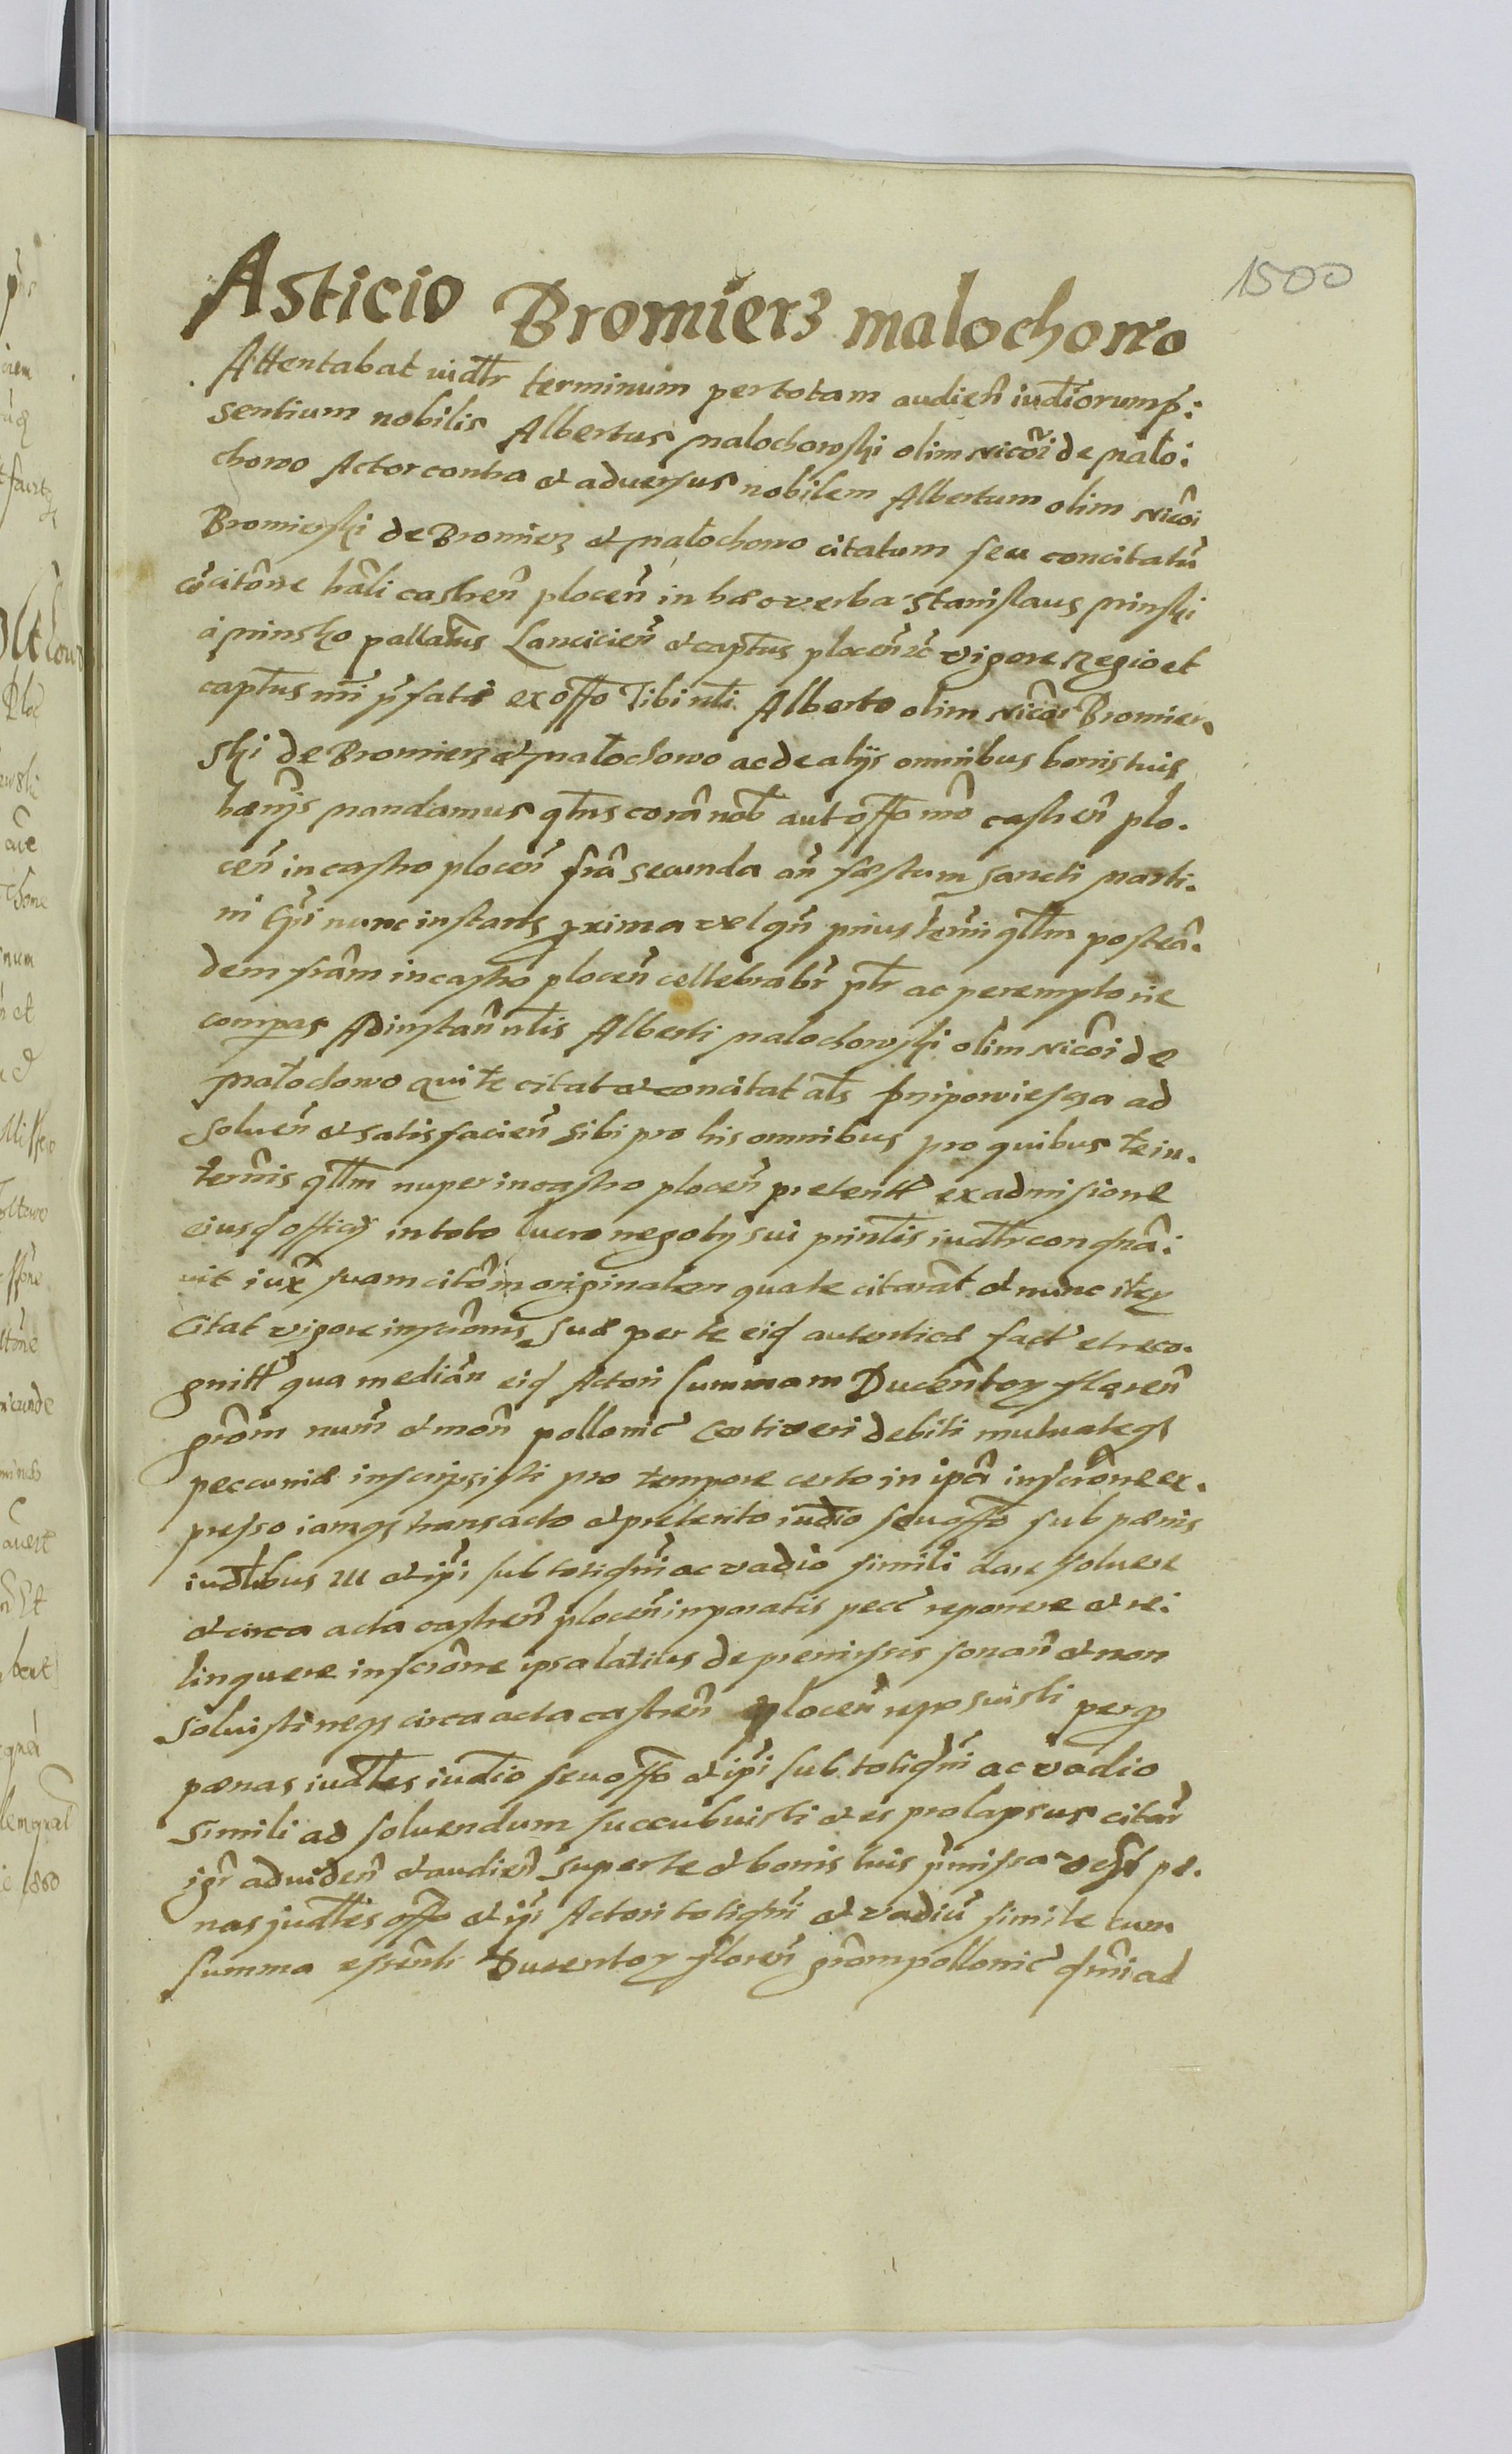 1500
Asticio Bromierz malochowo
Attentabat iudlr terminum per totam audien̄ iudiorum p̄:
sentium nobilis Albertus Malochowski olim Nicolai de Malo:
chowo Actor contra et adversus nobilem Albertum olim Nicolai
Bromierski de Bromierz et Malochowo citatum seu concitatū
cōcitōne hāli castren̄ plocen̄ in hæc verba Stanislaus Minski
a Minsko pallatius Lancicien̄ et captus plocen̄ etc vigore Regio et
captus mi p̄fati ex offo Tibi nbli Alberto olim Nicolai Bromier
ski de Bromierz et Malochowo ac de alijs omnibus bonis tuis
mandamus qtus corā nob aut offo nro castren̄ plo
cen̄ in castro plocen̄ fria secunda an̄ festum Sancti Marti
ni Epi nunc instans proxima vel qn̄ prius termi qllm post eā
dem friam in castro plocen̄ cellebrabr̄ pltr ac peremptorie
compas Ad instan̄ nblis Alberti Malochowski olim Nicolai de
Malochowo qui te citat et concitat als Pripowiescza ad
soluen̄ et satisfacien̄ sibi pro his omnibus pro quibus te in
termis qllm nuper in castro plocen̄ preteritt ex admissione
eiusd officij in toto lucro negotij sui printis iudlr condnā:
vit iux suam citōm originalem qua te citarat et nunc itez
Citat vigore inscrōnis suæ per te eid autentice fact et reco
gnitt qua median̄ eid Actori summam Ducentoz floren̄
grōm num̄ et mon̄ pollonic certi veri debiti mutuateq
peccuniæ inscripsisti pro tempore certo in ipa inscrōne ex
presso iamq transacto et preterito iudio seu offo sub pænis
iudlibus III et ipi sub totiqm̄ ac vadio simili dare soluere
et circa acta castren̄ plocen̄ in paratis pecc reponere et re:
linquere inscrōne ipsa latius de premissis sonan̄ et non
soluisti neq circa acta castren̄ plocen̄ reposuisti perq
pænas iudles iudio seu offo et ipi sub totiqm̄ ac vadio
simili ad soluendum succubuisti et es prolapsus citar̄
igr̄ ad viden̄ et audien̄ super te et bonis tuis p̄missa pe
nas judles offo et ipi Actori totiqm̄ et vadiū simile cum
summa essenli Ducentoz floren̄ grōm pollonic ad